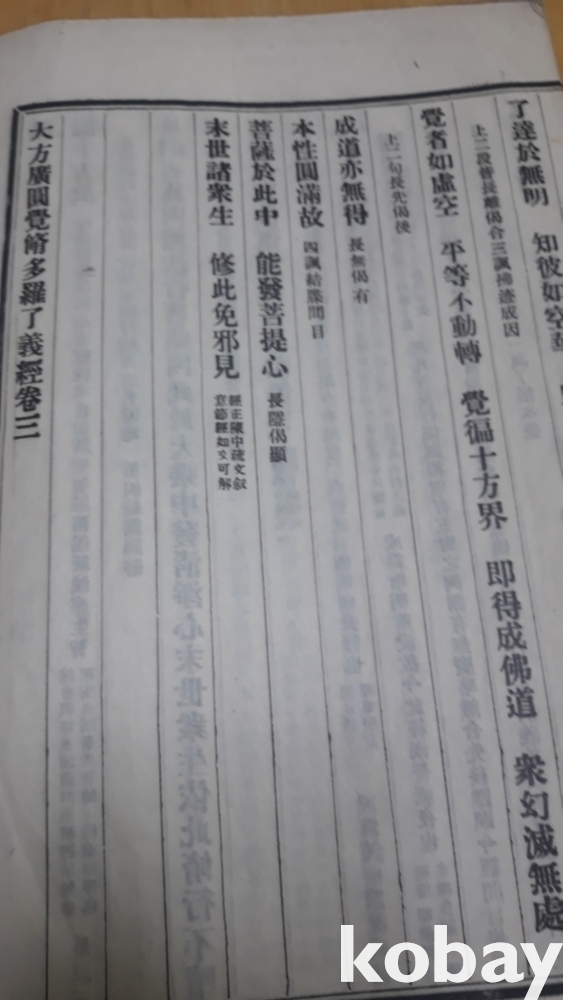 了達於無明 知彼如空
上二段皆長離偈合三諷佛證成因
覺者如虛空 平等不動轉 覺徧十方界 即得成佛道 衆幻滅無處
上二句長先偈後
成道亦無得 長無偈有
本性圓滿故 四諷結牒問目
菩薩於此中 能發菩提心 長隱偈顯
末世諸衆生 修此免邪見 經正陳中疏文叙
意節經如文可解
大方廣圓覺脩多羅了義經卷三
kobay